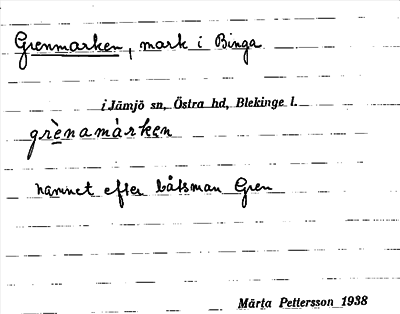 Grenmarken, mark i Binga
i Jämjö sn, Östra hd, Blekinge l.
grènamàrken
namnet efter båtsman Gren
Märta Pettersson 1938